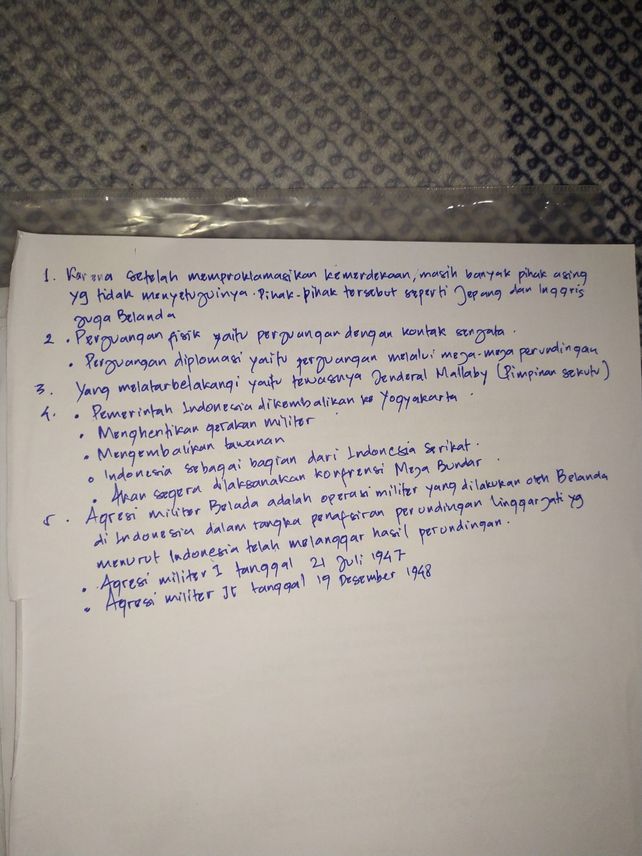 1. Karena setelah memproklamasikan kemerdekaan, masih banyak pihak asing
yg tidak menyetujuinya. Pihak-pihak tersebut seperti Jepang dan Inggris
juga Belanda
2. • Perjuangan fisik yaitu perjuangan dengan kontak senjata.
• Perjuangan diplomasi yaitu perjuangan melalui meja-meja perundingan
3. Yang melatarbelakangi yaitu tewasnya Jenderal Mallaby (Pimpinan sekutu)
4. • Pemerintah Indonesia dikembalikan ke Yogyakarta.
• Menghentikan gerakan militer
• Mengembalikan tawanan
• Indonesia sebagai bagian dari Indonesia Serikat.
• Akan segera dilaksanakan konfrensi Meja Bundar.
5. Agresi militer Belada adalah operasi militer yang dilakukan oleh Belanda
di Indonesia dalam rangka penafsiran perundingan linggarjati yg
menurut Indonesia telah melanggar hasil perundingan.
• Agresi militer I tanggal 21 Juli 1947
• Agresi militer II tanggal 19 Desember 1948